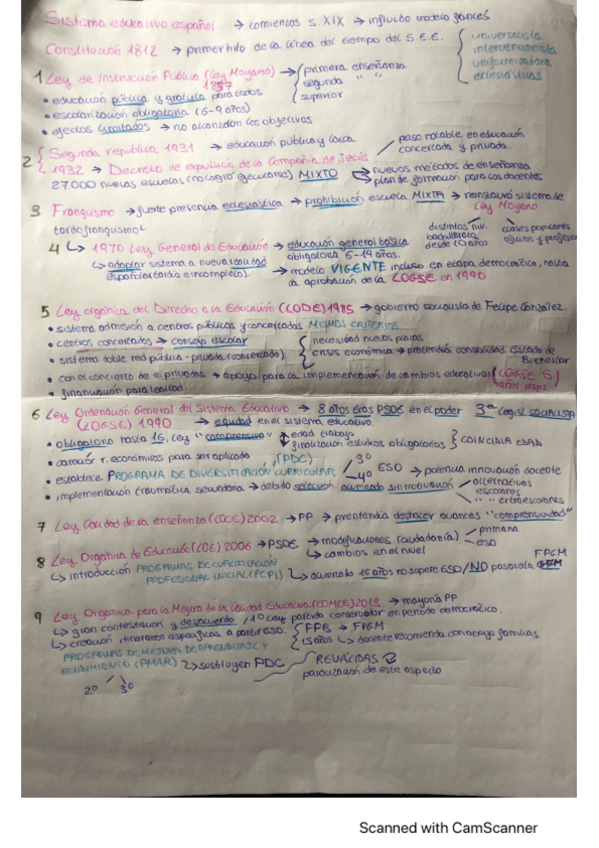 Sistema educativo español → comienzos s. XIX → influido modelo francés
Constitución 1812 → primer hito de la línea del tiempo del S.E.E.
universalista
intervencionista
uniformizadora
eclesiásticas
1 Ley de Instrucción Pública (Ley Moyano) 1857
primera enseñanza
segunda " "
superior
• educación pública y gratuita para todos
• escolarización obligatoria (6-9 años)
• efectos limitados → no alcanzaron los objetivos
2 Segunda república 1931 → educación pública y laica
1932 → Decreto de expulsión de la Compañía de Jesús → peso notable en educación concertada y privada
27.000 nuevas escuelas (no logró ejecutarse) MIXTO
nuevos métodos de enseñanza
plan de formación para los docentes
3 Franquismo → fuerte presencia eclesiástica → prohibición escuela MIXTA → reinstauró sistema de Ley Moyano
tardofranquismo
distintos niv. bachillerato desde 10 años
clases populares
oficios y profesio
4 ↳ 1970 Ley General de Educación → educación general básica obligatoria 6-14 años.
↳ adaptar sistema a nueva realidad española (tardío e incompleto).
→ modelo VIGENTE incluso en etapa democrática, hasta la aprobación de la LOGSE en 1990
5 Ley orgánica del Derecho a la Educación (LODE) 1985 → gobierno socialista de Felipe González.
• sistema admisión a centros públicos y concertados MISMOS CRITERIOS
• centros concertados → consejo escolar
• sistema doble red pública - privada (concertado)
necesidad nuevas plazas
crisis económica → pretendía consolidar Estado de Bienestar
• con el concierto de c. privados → apoyo para la implementación de cambios educativos (LOGSE 5 años desp.)
• financiación para lealtad.
6 Ley Ordenación General del Sistema Educativo → 8 años tras PSOE en el poder 3ª legisl. socialista
(LOGSE) 1990 → equidad en el sistema educativo.
• obligatorio hasta 16, ley "comprensiva"
edad trabajo
finalización estudios obligatorios } COINCIDIA EDAD
• carecía r. económicos para ser aplicada
• establece PROGRAMA DE DIVERSIFICACIÓN CURRICULAR (PDC) 3º 4º ESO → potencia innovación docente
• implementación traumática secundaria → debido selección alumnado sin motivación
alternativas escolares
" " extraescolares
7 Ley Calidad de la enseñanza (LOCE) 2002 → PP → pretendía deshacer avances "comprensividad"
8 Ley Orgánica de Educación (LOE) 2006 → PSOE → modificaciones (ciudadanía)
primaria
ESO
↳ cambios en el nivel
↳ introducción PROGRAMAS DE CUALIFICACIÓN PROFESIONAL INICIAL (PCPI)
↳ alumnado 15 años no supere ESO/NO pasar a la FPGM
9 Ley Orgánica para la Mejora de la Calidad Educativa (LOMCE) 2013 → mayoría PP
↳ gran contestación y desacuerdo, 1ª Ley partido conservador en periodo democrático.
↳ creación itinerarios específicos a partir ESO.
FPB → FPGM
15 años ↳ docente recomienda con apoyo familias
PROGRAMAS DE MEJORA DE APRENDIZAJE Y RENDIMIENTO (PMAR) ↳ sustituyen PDC
2º 3º
REVÁLIDAS
paralización de este aspecto
Scanned with CamScanner